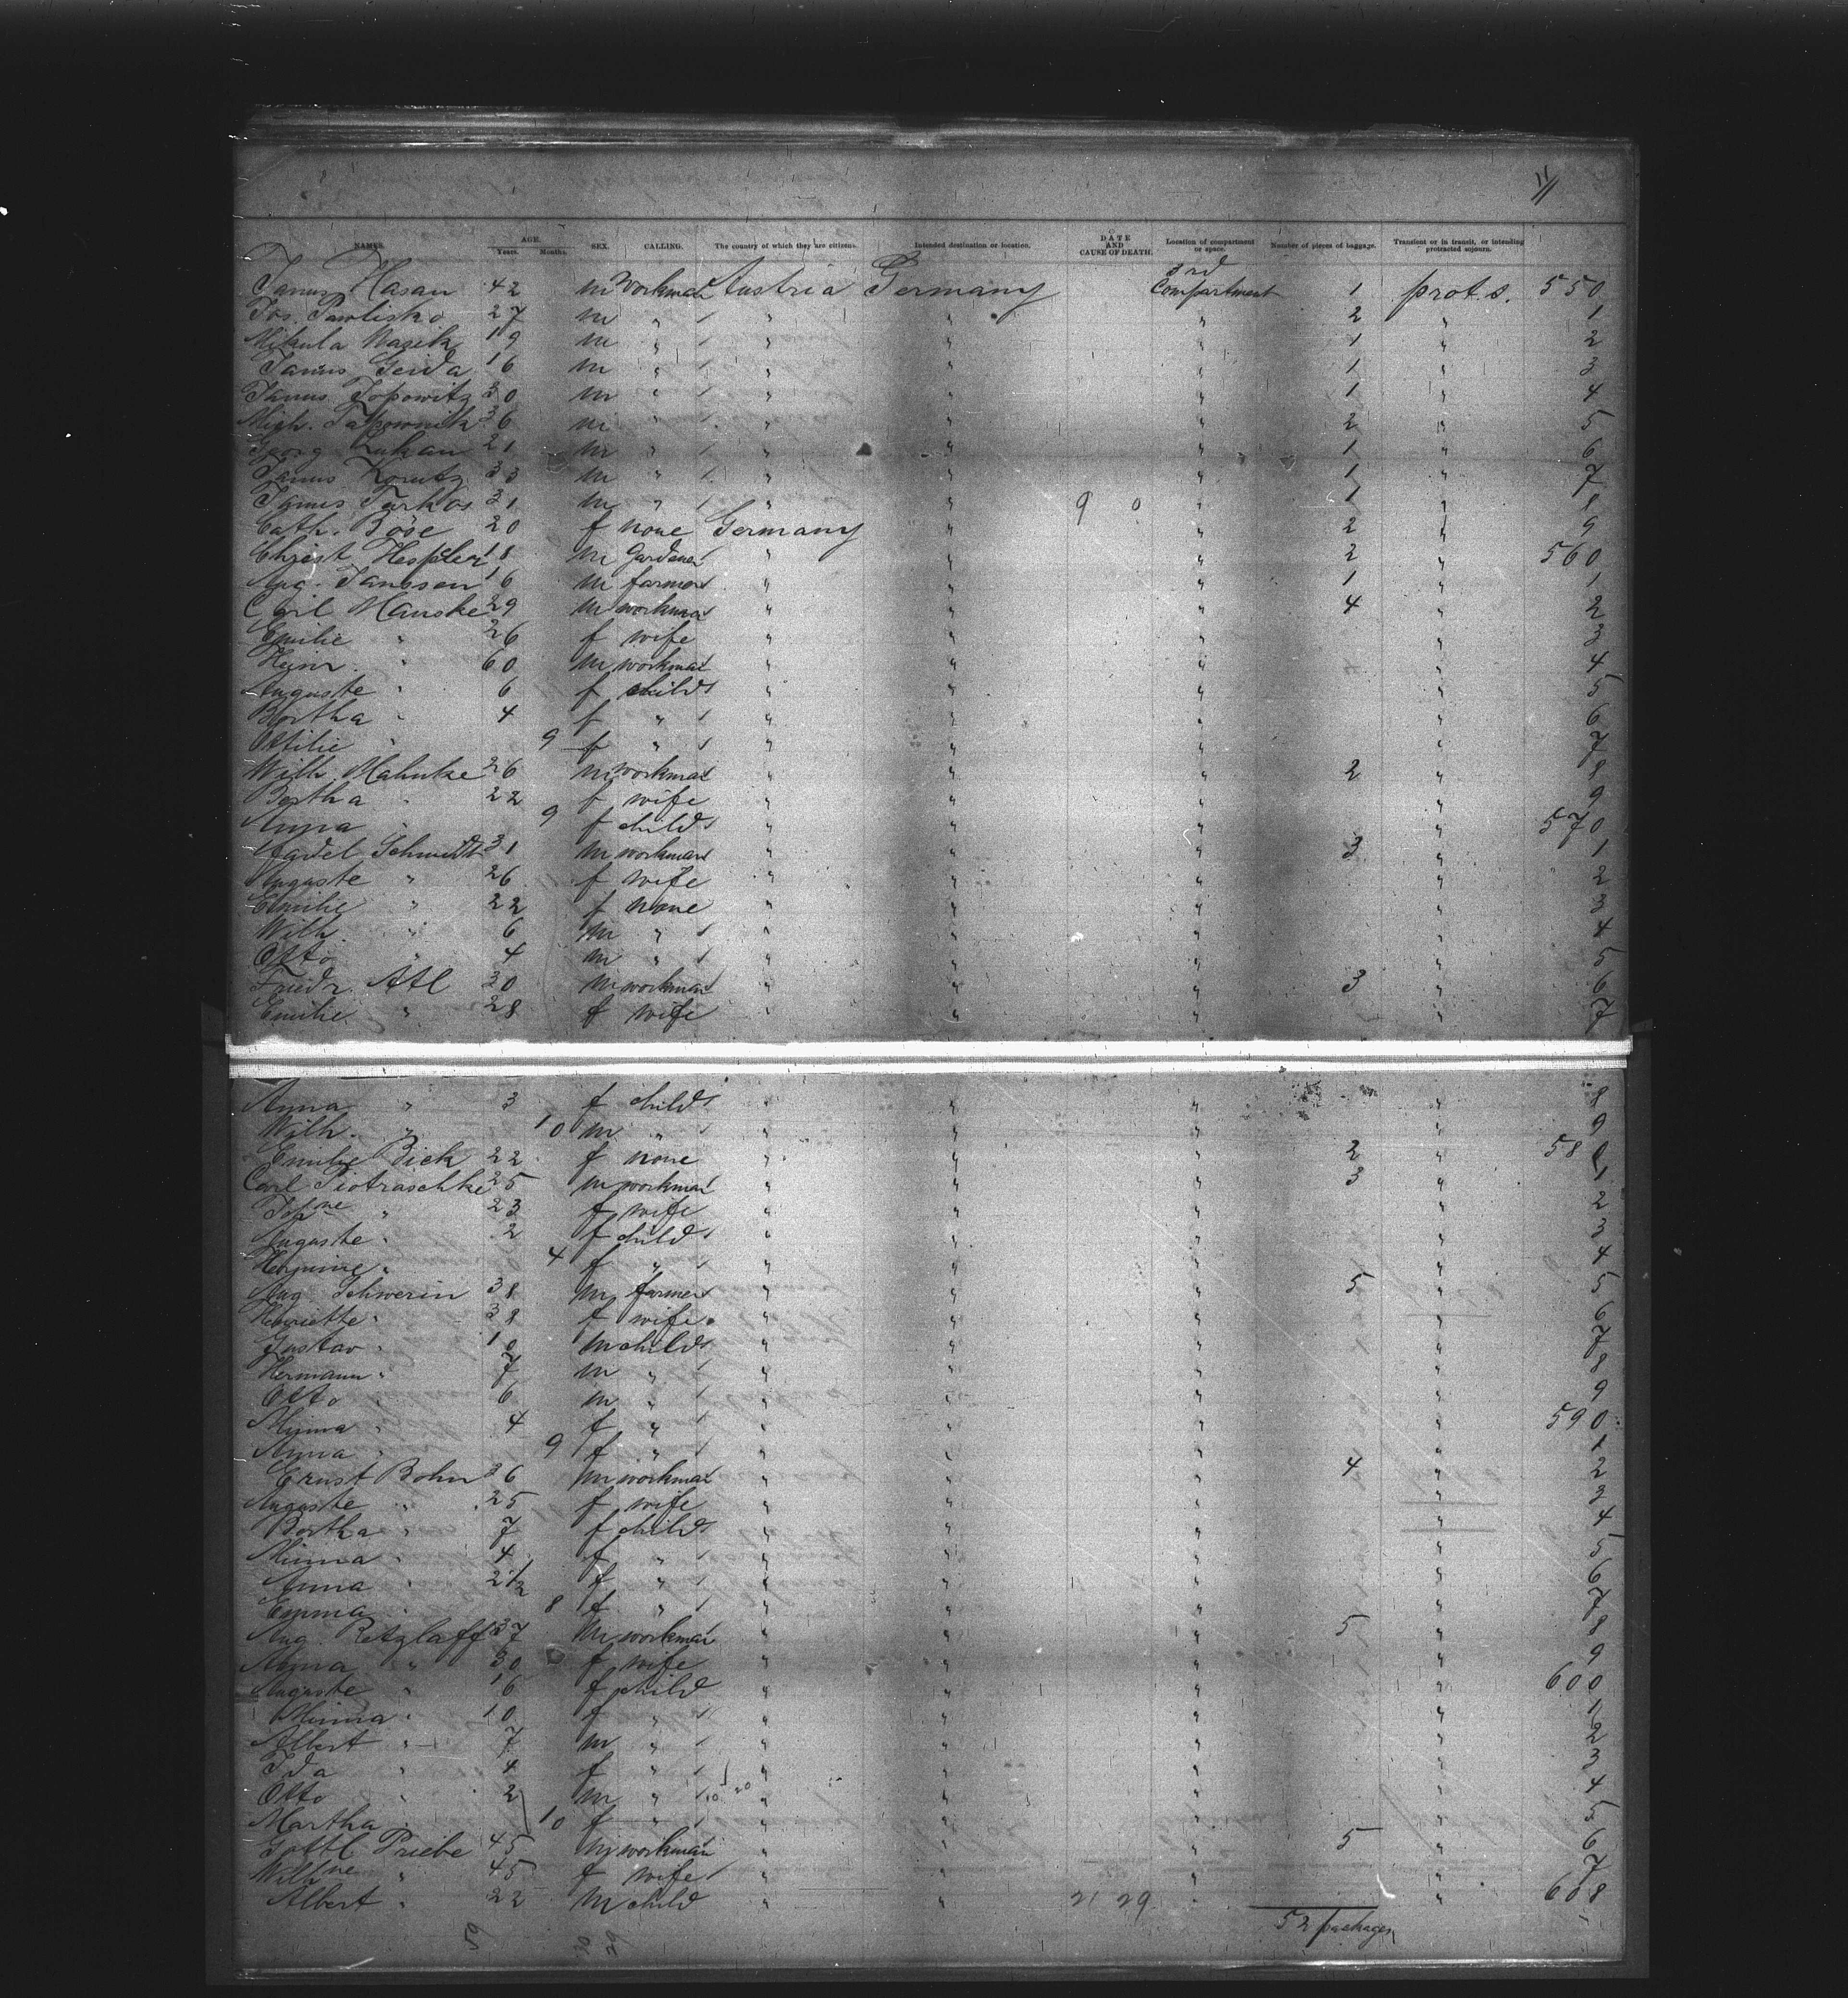 11
NAMES. AGE. Years. Months. SEX. CALLING. The country of which they are citizens. Intended destination or location. DATE AND CAUSE OF DEATH. Location of compartment or space. Number of pieces of baggage. Transient or in transit, or intending protracted sojourn.
Janus Hasan 42 m Workman Austria Germany 3rd Compartment 1 prot.s. 550
Jos. Pawlisko 27 m " " " " 2 " 1
Mikula Wasik 19 m " " " " 1 " 2
Janus Geida 16 m " " " " 1 " 3
Janus Popowitz 30 m " " " " 1 " 4
Mich. 36 m " " " " 2 " 5
Georg Lukan 21 m " " " " 1 " 6
Janus Korutz 33 m " " " " 1 " 7
Janus Turkos 31 m " " " 9 0 " 1 " 8
Cath. Böse 20 f none Germany " " 2 " 9
Christ. Hespeler 18 m Gardener " " " 2 " 560
Aug. Janssen 16 m farmer " " " 1 " 1
Carl Manske 29 m workman " " " 4 " 2
Emilie " 26 f wife " " " " 3
Heinr. " 60 m workman " " " " 4
Auguste " 6 f child " " " " 5
Bertha " 4 f " " " " " 6
Ottilie " 9 f " " " " " 7
Wilh. Mahnke 26 m workman " " " 2 " 8
Bertha " 22 f wife " " " " 9
Anna " 9 f child " " " " 570
Schmidt 31 m workman " " " 3 " 1
Auguste " 26 f wife " " " " 2
Emilie " 22 f none " " " " 3
Wilh. " 6 m " " " " " 4
Otto " 4 m " " " " " 5
Friedr. Atl 30 m workman " " " 3 " 6
Emilie " 28 f wife " " " " 7
Anna " 3 f child " " " " 8
Wilh. " 10 m " " " " " 9
Emilie Bick 22 f none " " " 2 " 580
Carl Piotraschke 25 m workman " " " 3 " 1
Johne " 23 f wife " " " " 2
Auguste " 2 f child " " " " 3
Hermine " 4 f " " " " " 4
Aug. Schwerin 38 m farmer " " " 5 " 5
Henriette " 38 f wife " " " " 6
Gustav " 10 m child " " " " 7
Hermann " 7 m " " " " " 8
Otto " 6 m " " " " " 9
Minna " 4 f " " " " " 590
Anna " 9 f " " " " " 1
Ernst Bohn 36 m workman " " " 4 " 2
Auguste " 25 f wife " " " " 3
Bertha " 7 f child " " " " 4
Minna " 4 f " " " " " 5
Anna " 2½ f " " " " " 6
Emma " 8 f " " " " " 7
Aug. Retzlaff 37 m workman " " " 5 " 8
Anna " 30 f wife " " " " 9
Auguste " 16 f child " " " " 600
Minna " 10 f " " " " " 1
Albert " 7 m " " " " " 2
Ida " 4 f " " " " " 3
Otto " 2 m " " " " " 4
Martha " 10 f " " " " " 5
Gottl Priebe 45 m workman " " " 5 " 6
Wilhne " 45 f wife " " " " 7
Albert " 22 m child " " 21 29 " " 608
52 packages
59 30 29